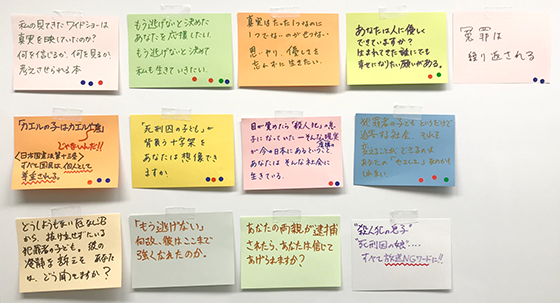 私の見てきたワイドショーは
真実を映していたのか?
何を信じるか、何を見るか
考えさせられる本
もう逃げないと決めた
あなたを応援したい。
もう逃げないと決めて
私も生きていきたい。
真実はたった1つなのに
1つでないのがせつない
思いやり、優しさを
忘れずに生きたい。
あなたは人に優しく
できていますか?
生まれてきた誰にでも
幸せになりたい願いがある。
冤罪は
繰り返される
「カエルの子はカエル」
じゃないんだ!!
〈日本国憲法第十三条〉
すべて国民は、個人として
尊重される。
「死刑囚の子ども」が
背負う十字架を
あなたは想像でき
ますか
目が覚めたら「殺人犯」の息
子になっていた―そんな現実
が今の日本にあるということ。
あなたは そんな社会に
生きている。
犯罪者の子どもというだけで
社会。それを
変えることができるのは
あなたの
どうしようもない
から、抜け出せずにいる
犯罪者の子ども。彼の
凄静な訴えを あなた
は、どう聞きますか?
「もう逃げない」
何故、彼はここまで
強くなれたのか。
あなたの両親が逮捕
されたら、あなたは信じて
あげられますか?
"殺人犯の息子"
"死刑囚の娘"....
すべて放送NGワードに!!